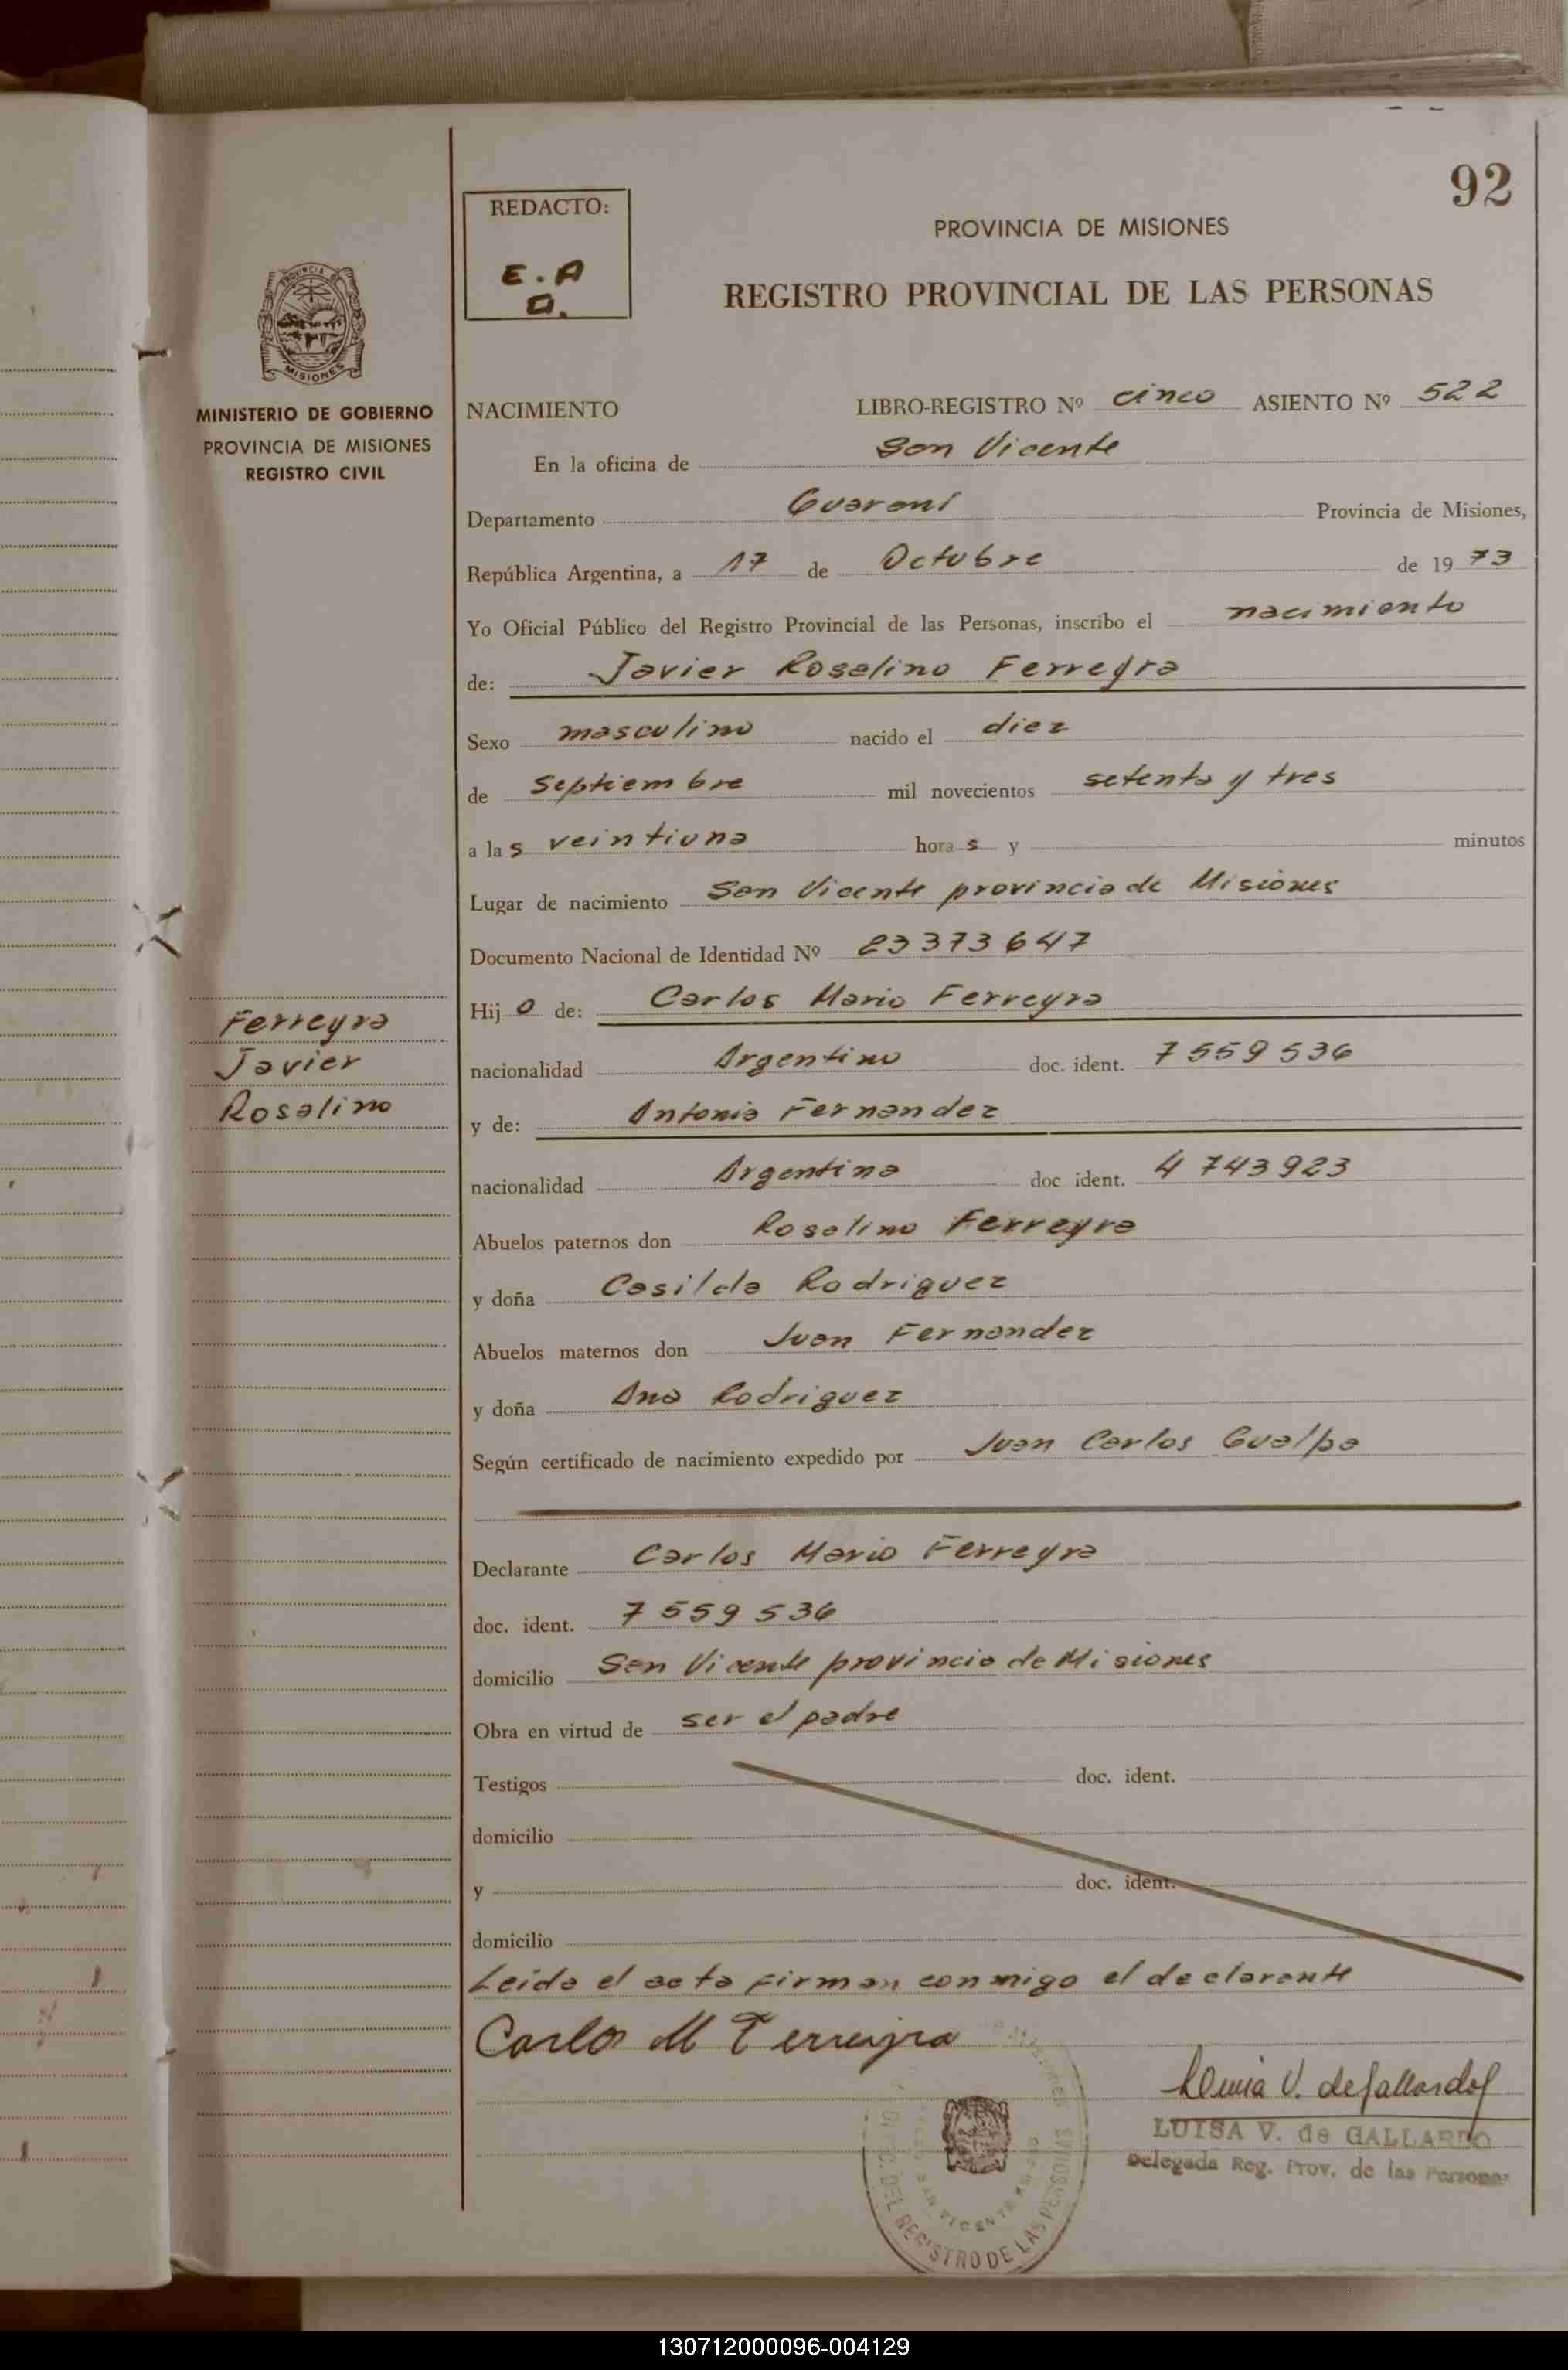 92
REDACTO:
E.A
O.
PROVINCIA DE MISIONES
REGISTRO PROVINCIAL DE LAS PERSONAS
PROVINCIA DE
MISIONES
MINISTERIO DE GOBIERNO
PROVINCIA DE MISIONES
REGISTRO CIVIL
Ferreyra
Javier
Rosalino
NACIMIENTO LIBRO-REGISTRO Nº cinco ASIENTO Nº 522
En la oficina de San Vicente
Departamento Guaraní Provincia de Misiones,
República Argentina, a 17 de Octubre de 1973
Yo Oficial Público del Registro Provincial de las Personas, inscribo el nacimiento
de: Javier Rosalino Ferreyra
Sexo masculino nacido el diez
de Septiembre mil novecientos setenta y tres
a las veintiuna horas y minutos
Lugar de nacimiento San Vicente provincia de Misiones
Documento Nacional de Identidad Nº 23373647
Hijo de: Carlos Mario Ferreyra
nacionalidad Argentino doc. ident. 7559536
y de: Antonia Fernandez
nacionalidad Argentina doc ident. 4743923
Abuelos paternos don Rosalino Ferreyra
y doña Casilda Rodriguez
Abuelos maternos don Juan Fernandez
y doña Ana Rodriguez
Según certificado de nacimiento expedido por Juan Carlos Gualpa
Declarante Carlos Mario Ferreyra
doc. ident. 7559536
domicilio San Vicente provincia de Misiones
Obra en virtud de ser el padre
Testigos doc. ident.
domicilio
y doc. ident.
domicilio
Leida el acta firman conmigo el declarante
Carlos M Ferreyra
Luisa V. de Gallardo
LUISA V. de GALLARDO
Delegada Reg. Prov. de las Personas
DEL REGISTRO DE LAS PERSONAS
SAN VICENTE
130712000096-004129